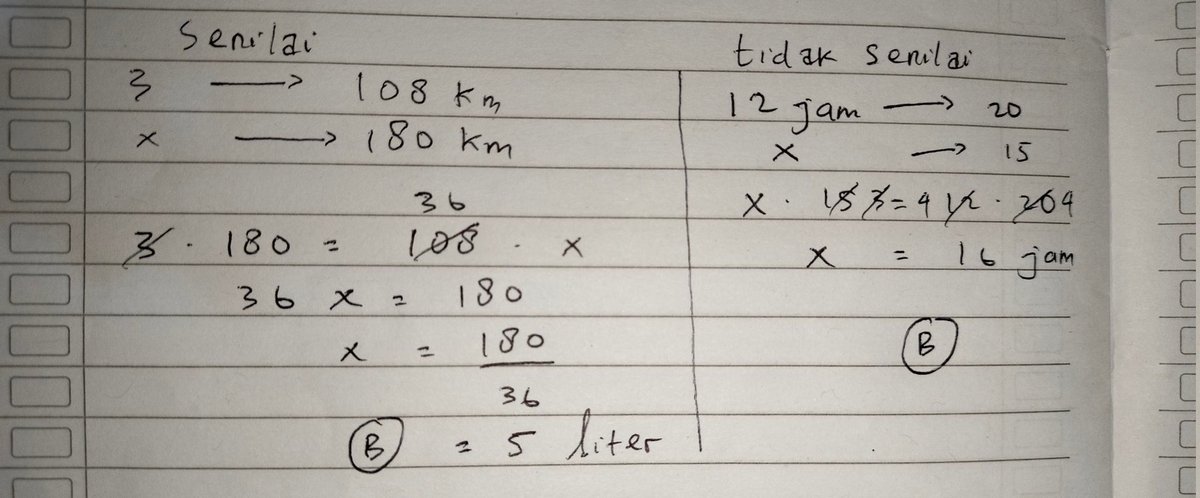 Senilai
3 → 108 km
x → 180 km
36
3 . 180 = 108 . x
36 x = 180
x = 180
36
B = 5 liter
tidak senilai
12 jam → 20
x → 15
x . 15 3 = 4 12 . 20 4
x = 16 jam
B